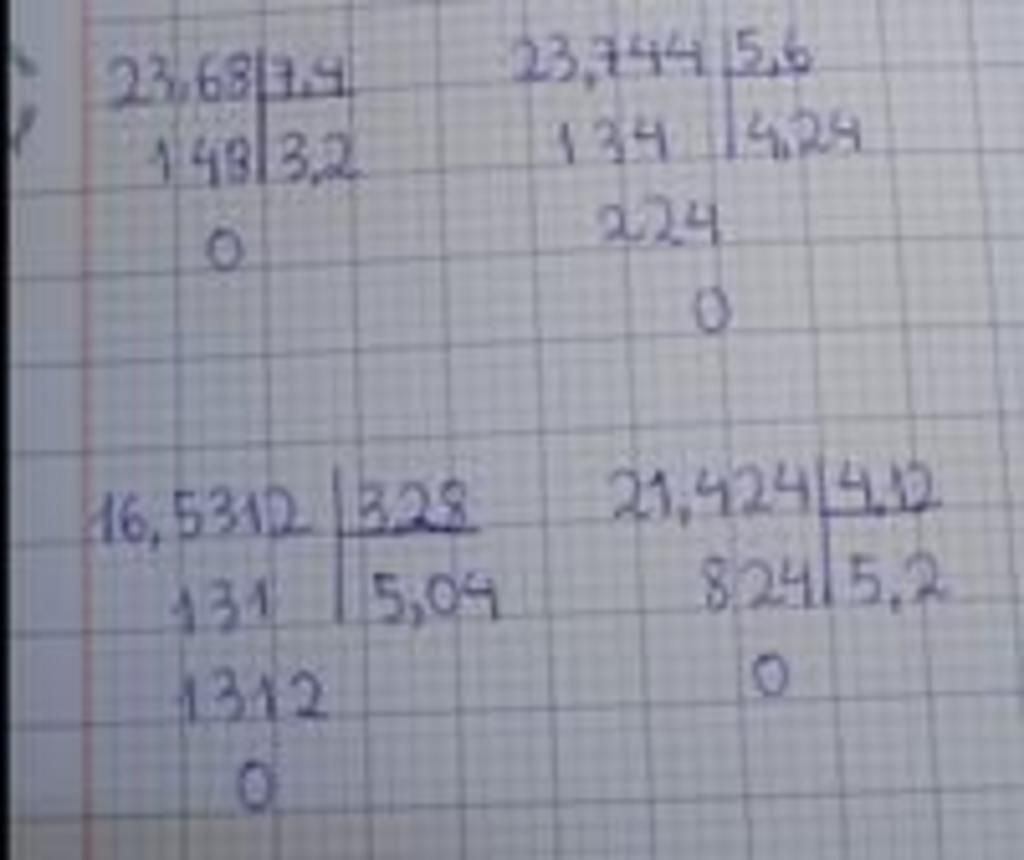 23,68 7,4
148 3,2
0
23,744 5,6
134 4,24
224
0
16,5312 3,28
131 5,04
1312
0
21,424 4,12
824 5,2
0